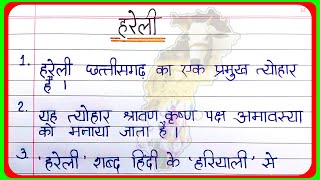 हरेली
1. हरेली छत्तीसगढ़ का एक प्रमुख त्योहार
है ।
2. यह त्योहार श्रावण कृष्ण पक्ष अमावस्या
को मनाया जाता है ।
3. 'हरेली' शब्द हिंदी के 'हरियाली' से